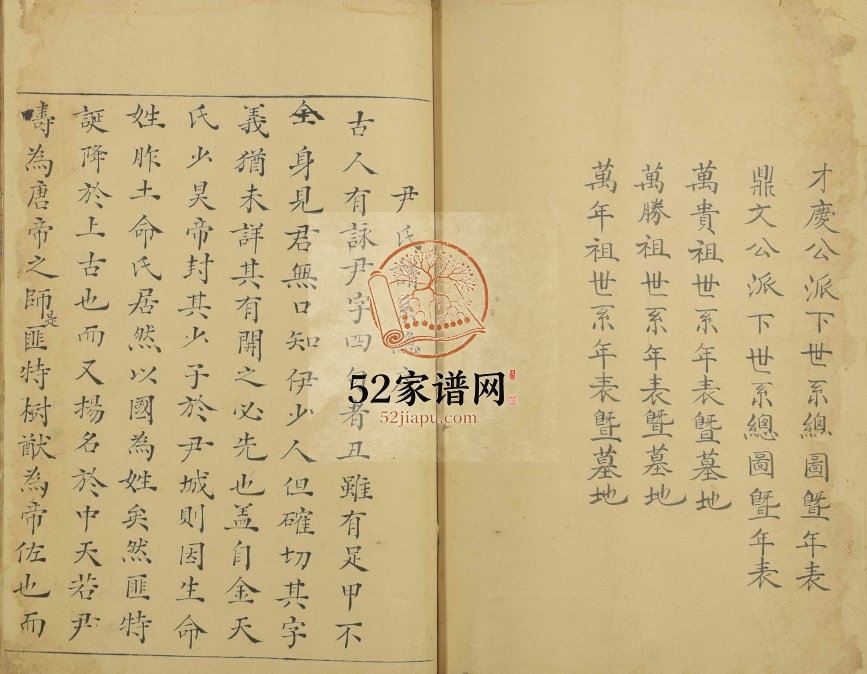 才慶公派下世系總圖曁年表
鼎文公派下世系總圖曁年表
萬貴祖世系年表曁墓地
萬勝祖世系年表曁墓地
萬年祖世系年表曁墓地
尹氏
古人有詠尹字四 者丑雖有足甲不
全身見君無口知伊少人但確切其字
義猶未詳其有開之必先也盖自金天
氏少昊帝封其少子於尹城則因生命
姓胙土命氏居然以國為姓矣然匪特
誕降於上古也而又揚名於中天若尹
疇為唐帝之師是匪特樹猷為帝佐也而
52家谱网
52jiapu.com